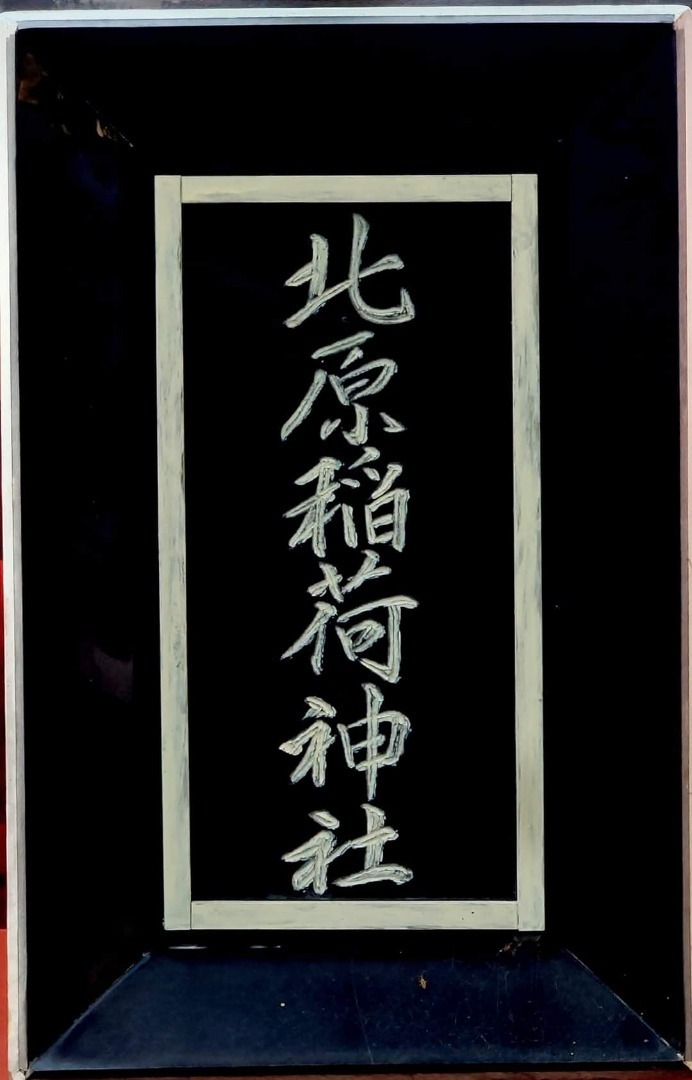 北原稲荷神社